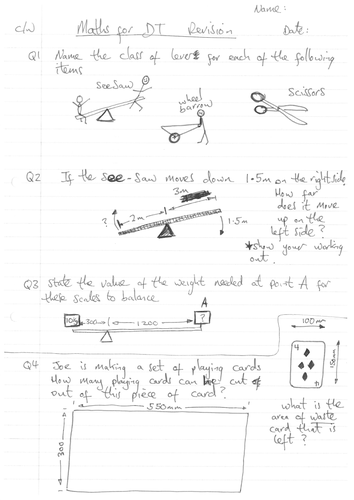 Name:
c/w Maths for DT Revision Date:
Q1 Name the class of lever for each of the following
items
seesaw
wheel
barrow
scissors
Q2 If the see-saw moves down 1.5m on the right side.
How far
does it move
up on the
left side?
*show your working
out.
3m
2m
?
1.5m
Q3 State the value of the weight needed at point A for
these scales to balance
A
300
1200
?
Q4 Joe is making a set of playing cards
How many playing cards can be cut
out of this piece of card?
100mm
4
150mm
what is the
area of waste
card that is
left?
550mm
300